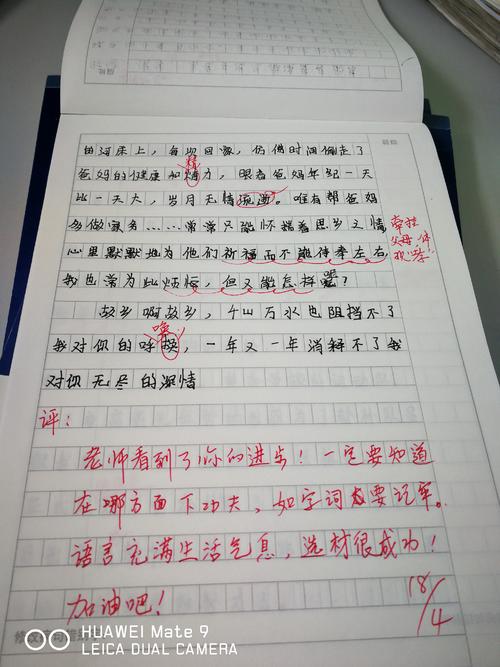 由河床上，每期回家，仿佛时间偷走了
爸妈的健康和情力，眼看爸妈年纪一天
精
比一天大，岁月无情流逝。唯有帮爸妈
多做家务……常常只能怀揣着思乡之情
心里默默地为他们祈福而不能侍奉左右
牵挂
父母，体
现“孝”
我也常为此烦恼，但又能怎样呢？
故乡啊故乡，千山万水也阻挡不了
唤
我对你的呼换，一年又一年消释不了我
对你无尽的深情
评：
老师看到了你的进步！一定要知道
在哪方面下功夫，如字词要记牢。
语言充满生活气息，选材很成功！
加油吧！
18/4
HUAWEI Mate 9
LEICA DUAL CAMERA